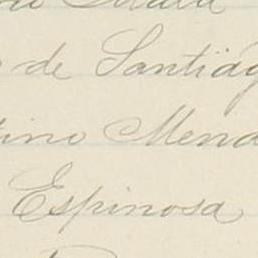 de Santiag
ino Mend
Espinosa